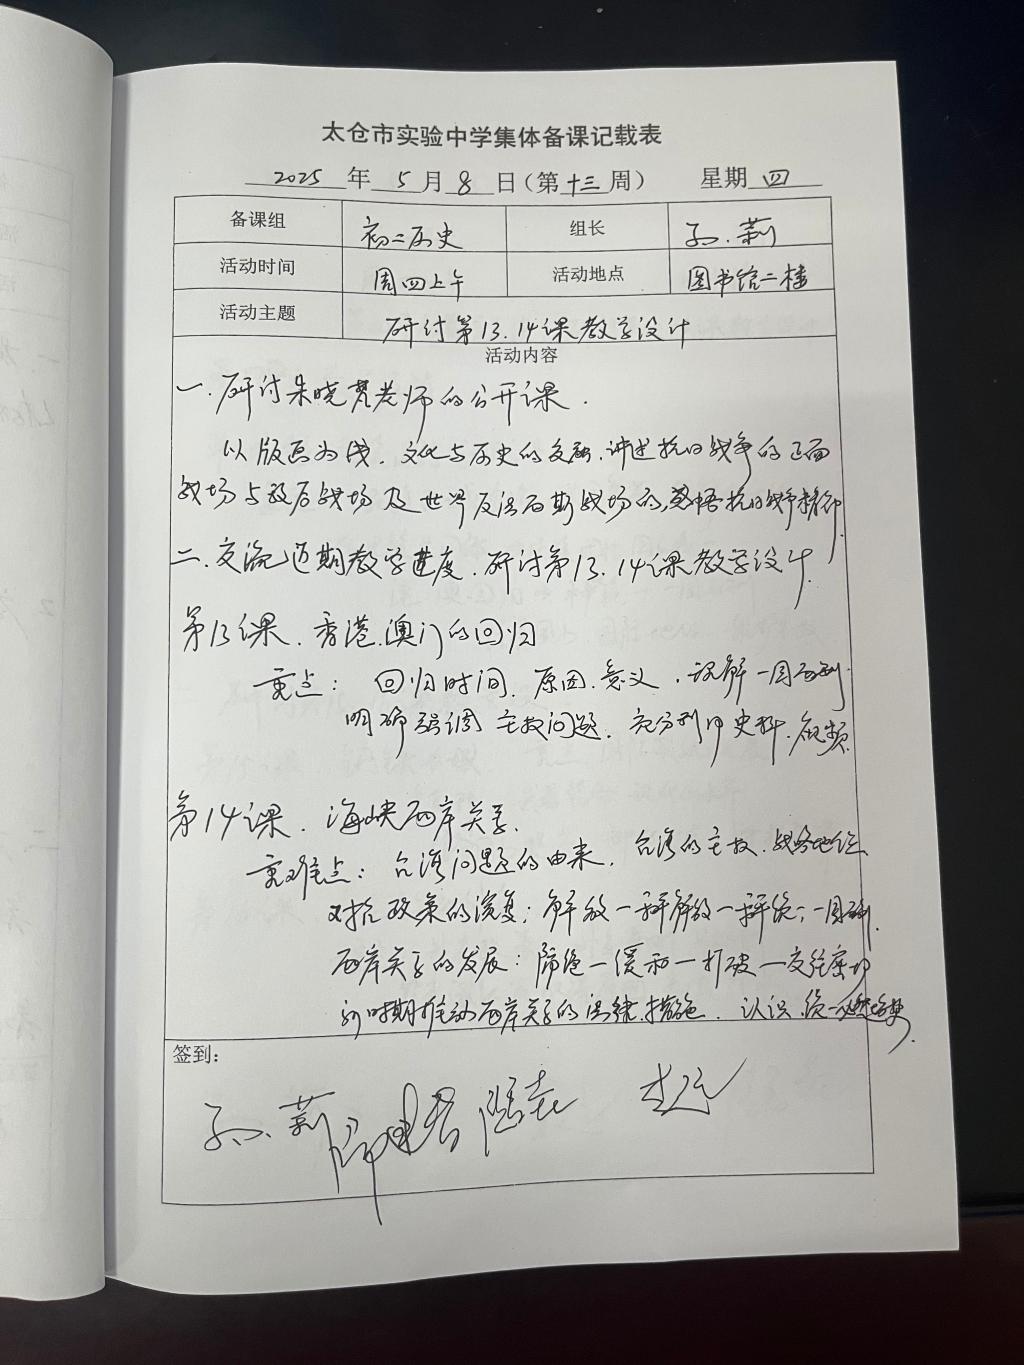 太仓市实验中学集体备课记载表
2025 年 5 月 8 日（第 十三 周） 星期 四
备课组 初二历史 组长 孙莉
活动时间 周四上午 活动地点 图书馆二楼
活动主题 研讨第13.14课教学设计
活动内容
一.研讨朱晓老师的公开课.
以版画为线.文化与历史的交融.讲述抗日战争的正面
战场与敌后战场及世界反法西斯战场的,感悟抗日战争精神.
二.交流近期教学进度.研讨第13.14课教学设计.
第13课.香港.澳门的回归
重点： 回归时间.原因.意义.理解一国两制.
明确强调主权问题.充分利用史料.视频.
第14课.海峡两岸关系.
重难点：台湾问题的由来.台湾的主权.战略地位.
对台政策的演变：解放一和平解放一和平统一；一国两制.
两岸关系的发展：隔绝一缓和一打破一交往密切
新时期推动两岸关系的措施.认识.统一必然趋势.
签到：
孙莉